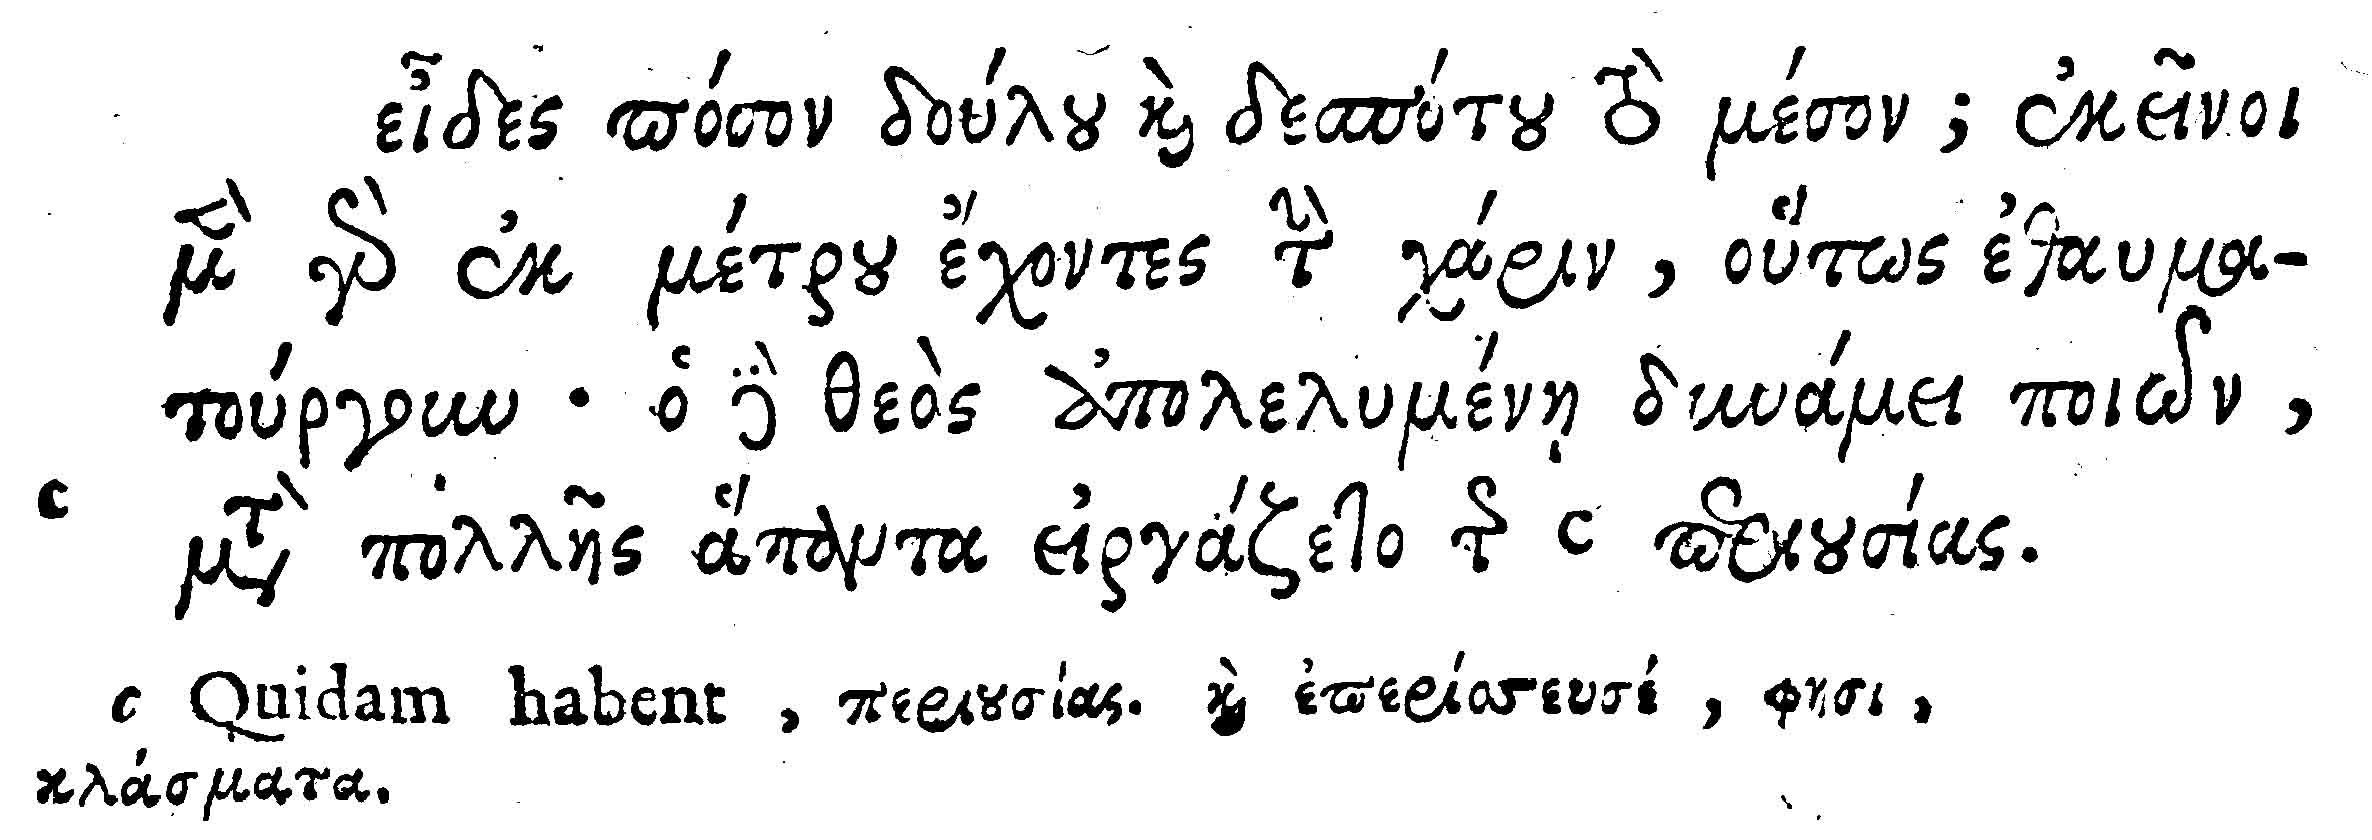 εἶδες πόσον δούλȣ ϗ δεσπότȣ τὸ μέσον; ἐκεῖνοι
μὲν γὰρ ἐκ μέτρȣ ἔχοντες τὴν χάριν, οὕτως ἐθαυμα-
τούργουν· ὁ δὲ θεὸς ἀπολελυμένῃ δυνάμει ποιῶν,
c μετὰ πολλῆς ἅπαντα εἰργάζετο τῆς c περιȣσίας.
c Quidam habent, περιȣσίας. ϗ ἐπερίσσευσέ, φησι,
κλάσματα.